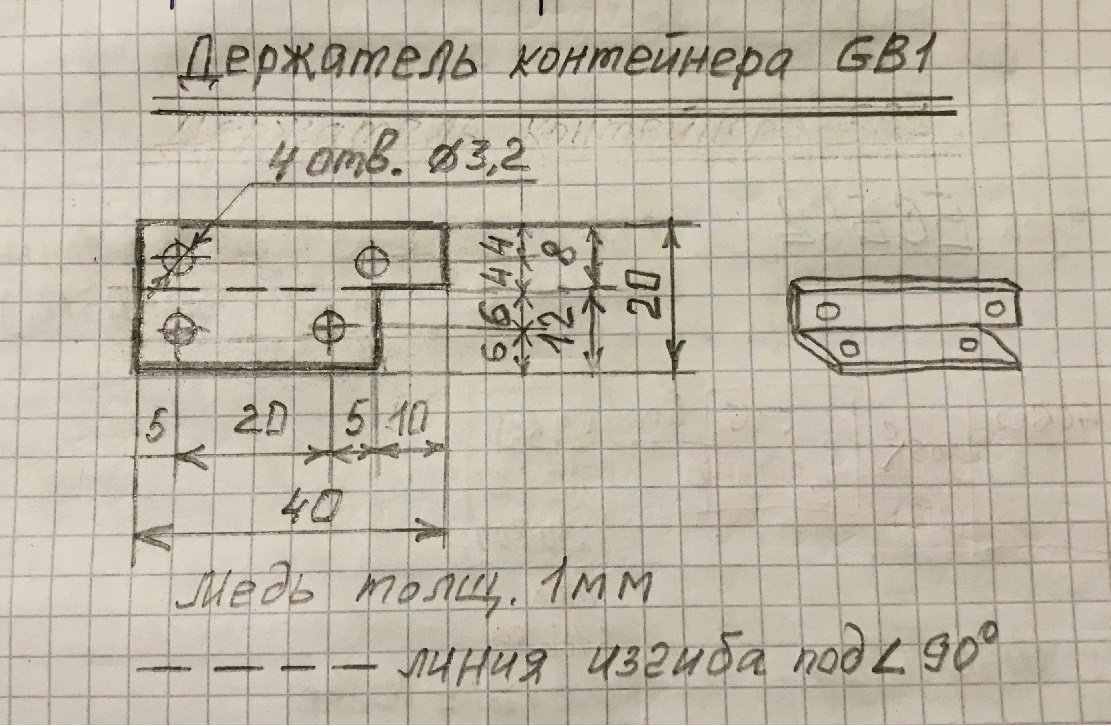 Держатель контейнера GB1
4 отв. ⌀3,2
4 4 8
6 6 12
20
5 20 5 10
40
Медь толщ. 1мм
— — — — линия изгиба под ∠ 90°